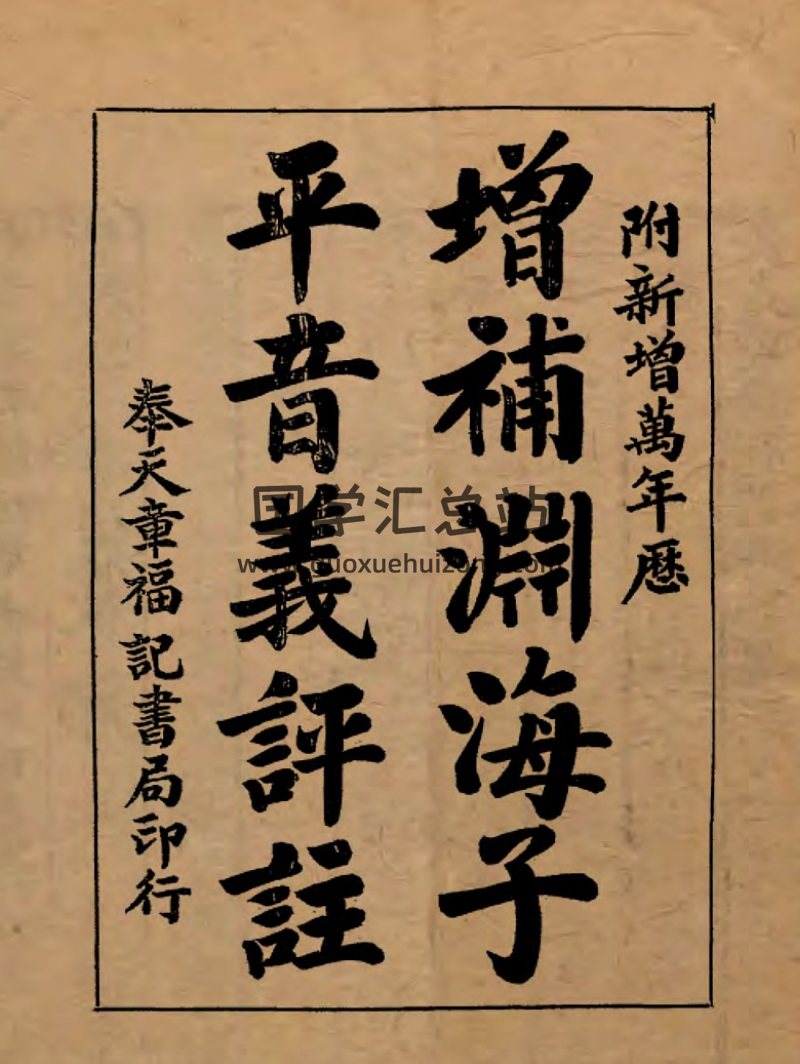 附新增萬年厯
增補淵海子
平音義評註
奉天章福記書局印行
国学汇总站
www.guoxuehuizong.com